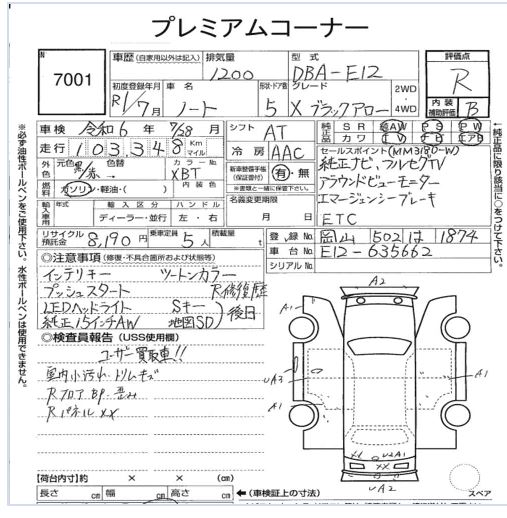 プレミアムコーナー
No.
7001
車歴 (自家用以外は記入)
排気量
1200
型式
DBA-E12
評価点
R
内装補助評価
B
初度登録年月
R1/7月
車名
ノート
形状・ドア数
5
グレード
X ブラックアロー
2WD
4WD
車検 令和 6年 7/28月
シフト AT
純正品 SR AW PS PW
カワ ナビ TV
走行 103,348 Km マイル
冷房 AAC
セールスポイント (MM318D-W)
純正ナビ,フルセグTV
アラウンドビューモニター
エマージェンシーブレーキ
ETC
外色 元色 黒/赤→ 色替
カラーNo. XBT
内装色
燃料 ガソリン・軽油・( )
新車整備手帳(保証書付) 有・無
※書類と一緒に保管下さい。
輸入車 年式 輸入区分 ハンドル
ディーラー・並行 左・右
名義変更期限
月 日
リサイクル預託金 8,190円
乗車定員 5人
積載量 t
登録No. 岡山 502 は 1874
車台No. E12-635662
シリアルNo.
◎注意事項 (修復・不具合箇所および状態等)
インテリキー ツートンカラー
プッシュスタート R修復歴
LEDヘッドライト Sキー
純正15インチAW 地図SD
後日
◎検査員報告 (USS使用欄)
ユーザー買取車!!
室内小汚れ・トリムキズ
Rフロア BP・歪み
Rパネル XX
A2
A1
UA3
A1
A1
XX
UA2
スペア
【荷台内寸】約 × × (cm)
長さ cm 幅 cm 高さ cm
←(車検証上の寸法)
※必ず油性ボールペンをご使用下さい。水性ボールペンは使用できません。
←純正品に限り該当に○をつけて下さい。